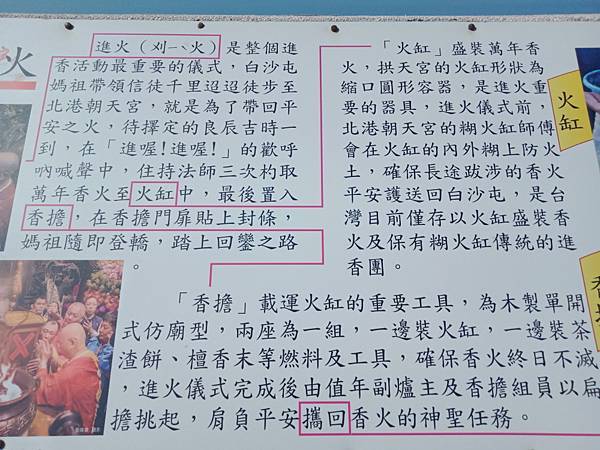 火
進火（刈ㄧˋ火）是整個進
香活動最重要的儀式，白沙屯
媽祖帶領信徒千里迢迢徒步至
北港朝天宮，就是為了帶回平
安之火，待擇定的良辰吉時一
到，在「進喔！進喔！」的歡呼
吶喊聲中，住持法師三次杓取
萬年香火至火缸中，最後置入
香擔，在香擔門扉貼上封條，
媽祖隨即登轎，踏上回鑾之路
。
「火缸」盛裝萬年香
火，拱天宮的火缸形狀為
縮口圓形容器，是進火重
要的器具，進火儀式前，
北港朝天宮的糊火缸師傅
會在火缸的內外糊上防火
土，確保長途跋涉的香火
平安護送回白沙屯，是台
灣目前僅存以火缸盛裝香
火及保有糊火缸傳統的進
香團。
火缸
「香擔」載運火缸的重要工具，為木製單開
式仿廟型，兩座為一組，一邊裝火缸，一邊裝茶
渣餅、檀香末等燃料及工具，確保香火終日不滅
，進火儀式完成後由值年副爐主及香擔組員以扁
擔挑起，肩負平安攜回香火的神聖任務。
香擔